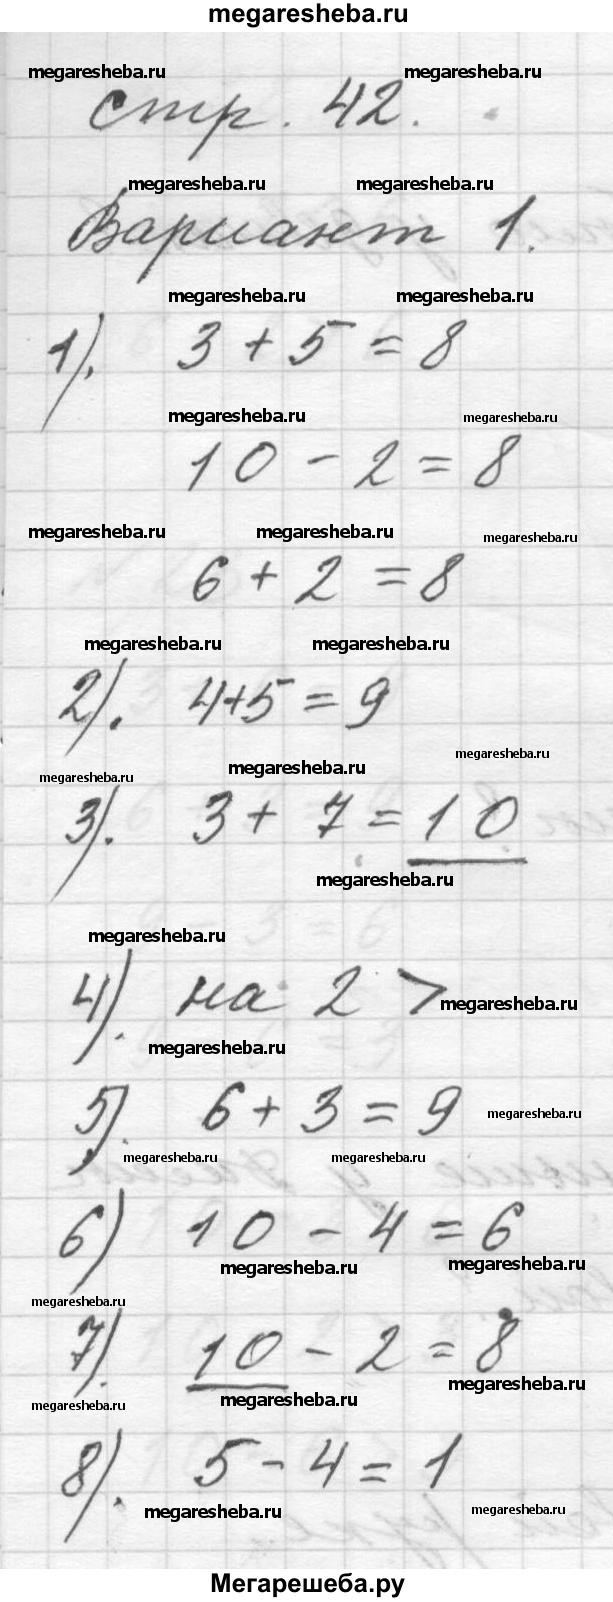 megaresheba.ru
megaresheba.ru megaresheba.ru
стр. 42.
megaresheba.ru megaresheba.ru
Вариант 1.
megaresheba.ru megaresheba.ru
1). 3 + 5 = 8
megaresheba.ru megaresheba.ru
10 - 2 = 8
megaresheba.ru megaresheba.ru megaresheba.ru
6 + 2 = 8
megaresheba.ru megaresheba.ru
2). 4+5 = 9
megaresheba.ru megaresheba.ru megaresheba.ru
3). 3 + 7 = 10
megaresheba.ru
megaresheba.ru
4). на 2 > megaresheba.ru
megaresheba.ru
5). 6 + 3 = 9 megaresheba.ru
megaresheba.ru megaresheba.ru
6) 10 - 4 = 6
megaresheba.ru megaresheba.ru
megaresheba.ru
7). 10 - 2 = 8
megaresheba.ru megaresheba.ru megaresheba.ru
8). 5 - 4 = 1
megaresheba.ru megaresheba.ru
Мегарешеба.ру